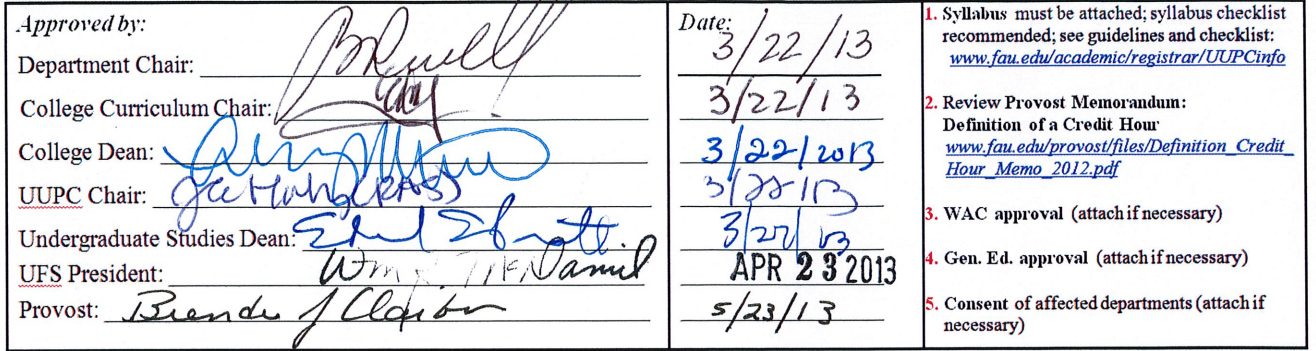 Approved by:
Department Chair:
College Curriculum Chair:
College Dean:
UUPC Chair:
Undergraduate Studies Dean:
UFS President: Wm McDaniel
Provost: Brenda J Claiborn
Date:
3/22/13
3/22/13
3/22/2013
3/22/13
3/22/13
APR 23 2013
5/23/13
1. Syllabus must be attached; syllabus checklist
recommended; see guidelines and checklist:
www.fau.edu/academic/registrar/UUPCinfo
2. Review Provost Memorandum:
Definition of a Credit Hour
www.fau.edu/provost/files/Definition_Credit_
Hour_Memo_2012.pdf
3. WAC approval (attach if necessary)
4. Gen. Ed. approval (attach if necessary)
5. Consent of affected departments (attach if
necessary)